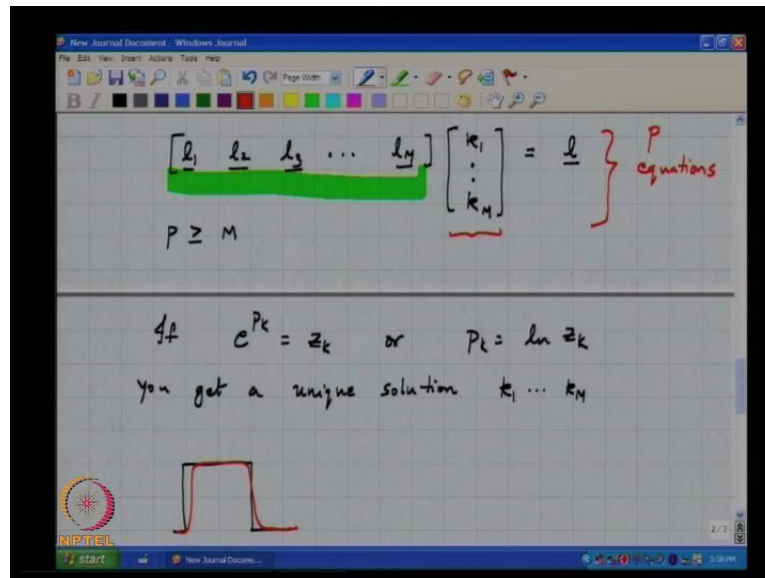 New Journal Document - Windows Journal
File Edit View Insert Actions Tools Help
Page Width
B I
[l₁ l₂ l₃ ... l_M] [k₁ : k_M] = l } P equations
P ≥ M
If e^{P_k} = z_k or P_k = ln z_k
You get a unique solution k₁ ... k_M
2/3
NPTEL
start New Journal Docume... 3:58 PM